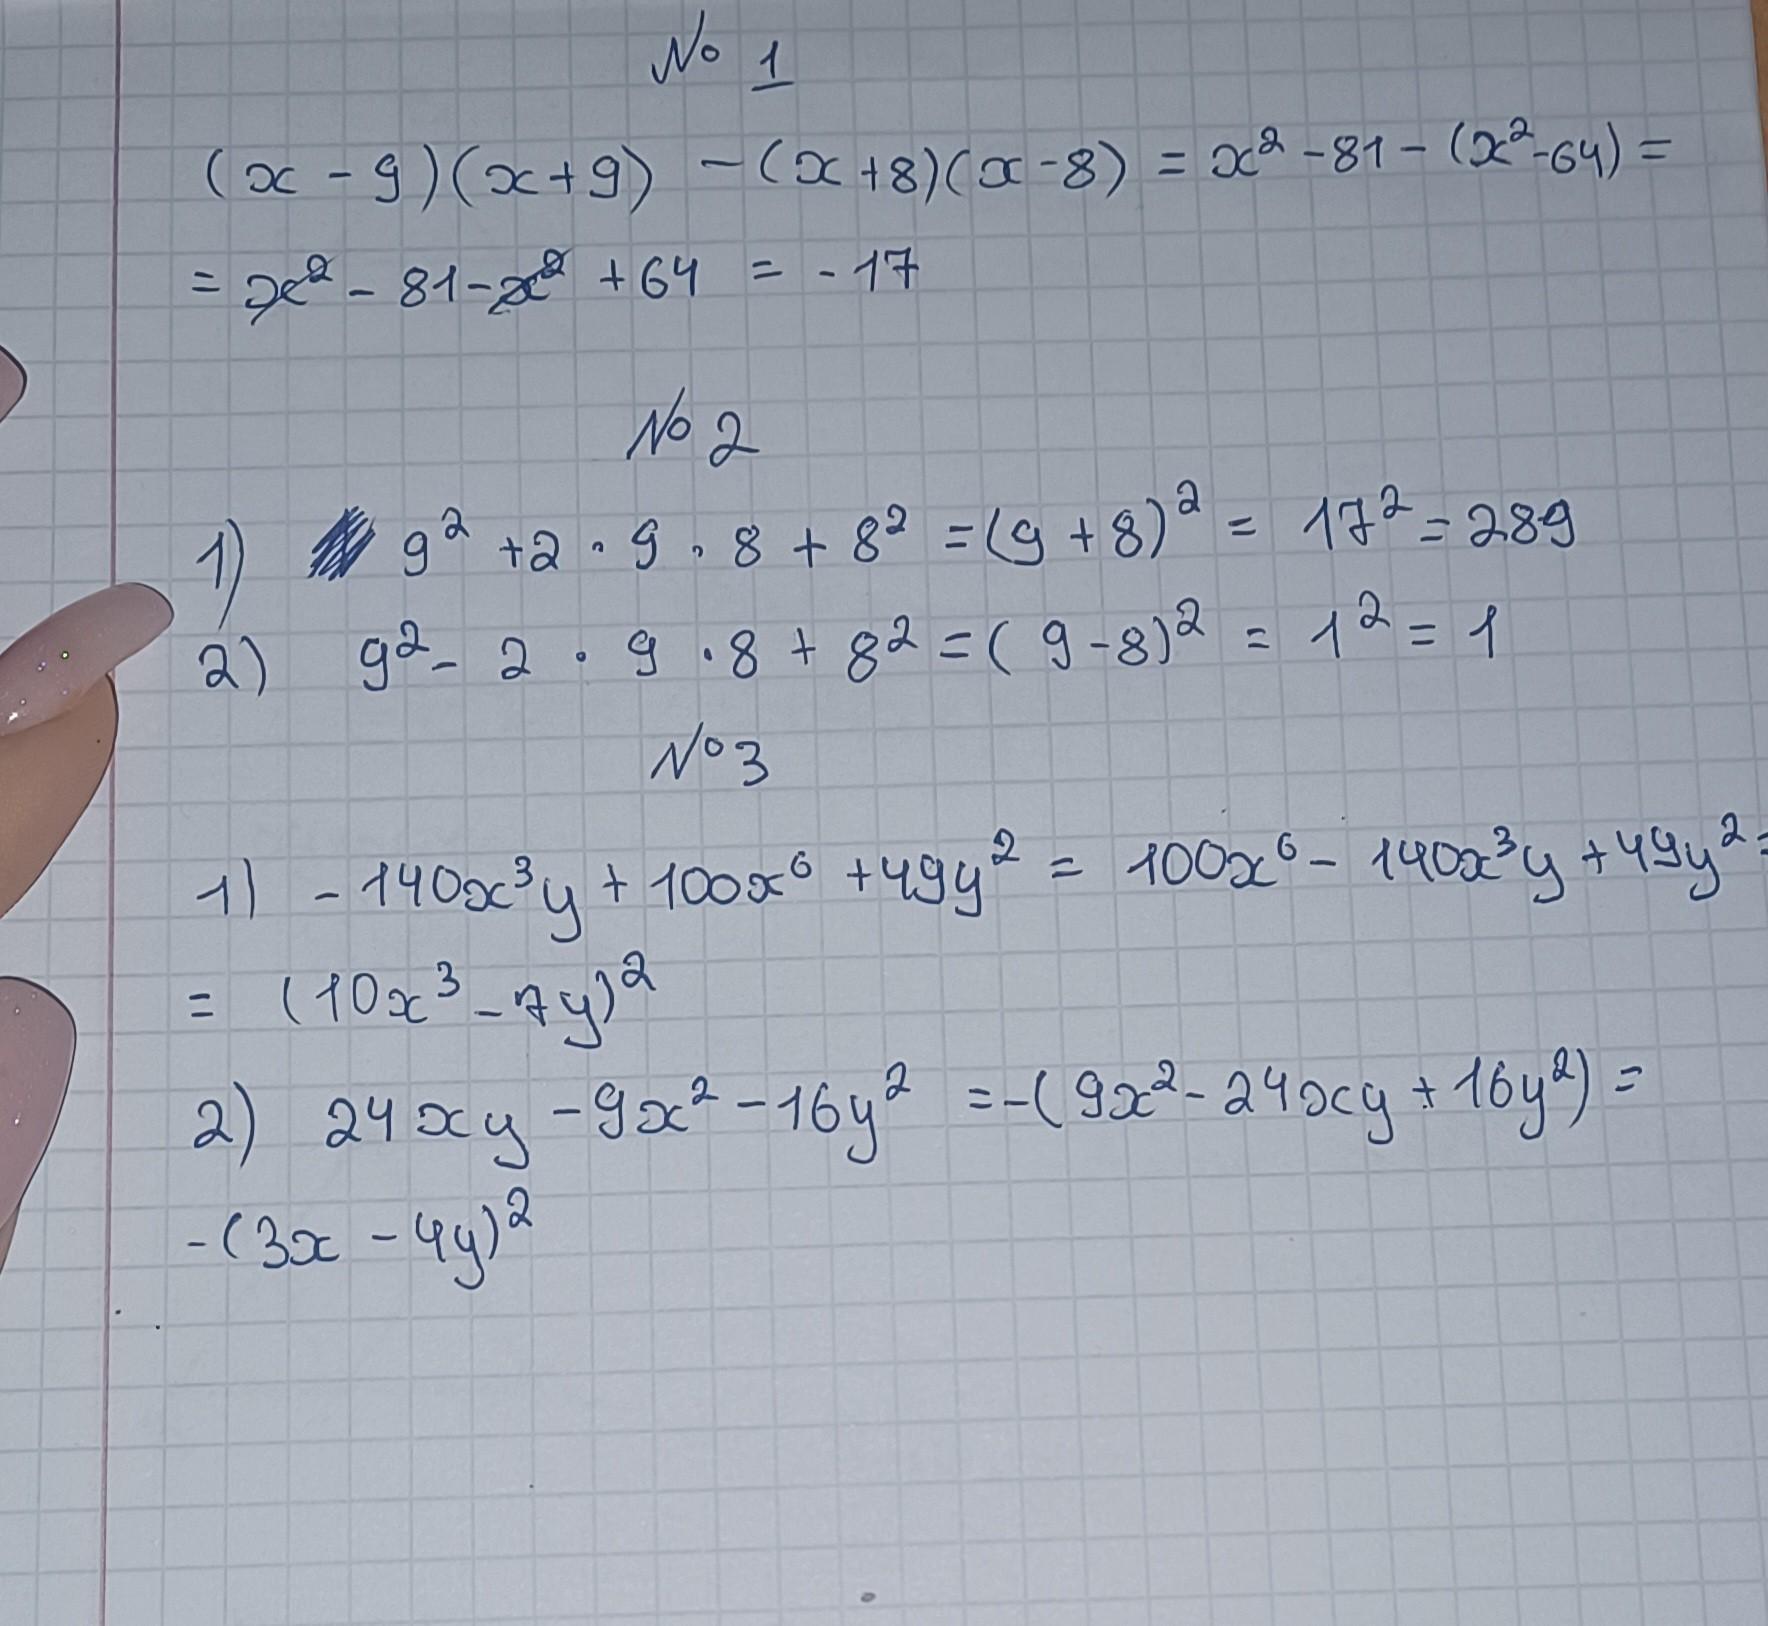 № 1
(x - 9)(x + 9) - (x + 8)(x - 8) = x² - 81 - (x² - 64) =
= x² - 81 - x² + 64 = - 17
№ 2
1) 9² + 2 · 9 · 8 + 8² = (9 + 8)² = 17² = 289
2) 9² - 2 · 9 · 8 + 8² = (9 - 8)² = 1² = 1
№ 3
1) - 140x³y + 100x⁶ + 49y² = 100x⁶ - 140x³y + 49y² =
= (10x³ - 7y)²
2) 24xy - 9x² - 16y² = -(9x² - 24xy + 16y²) =
-(3x - 4y)²